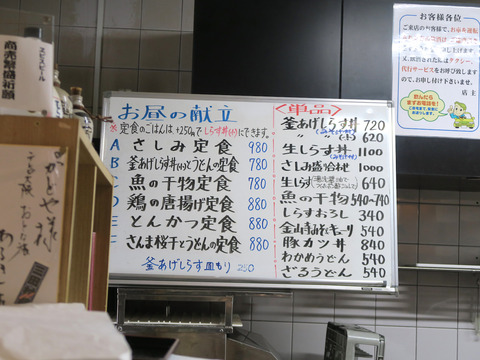 お昼の献立
※定食のごはんは+250円でしらす丼(小)にできます。
A さしみ定食 980
B 釜あげしらす丼(小)とうどんの定食 780
魚の干物定食 780
D 鶏の唐揚げ定食 880
とんかつ定食 880
さんま桜干とうどんの定食 880
釜あげしらす皿もり 250
<単品>
釜あげしらす丼 720
〃 (小) 620
生しらす丼 1100
さしみ盛合せ 1000
生しらす 640
魚の干物 540~740
しらすおろし 340
金山寺みそキューリ 540
豚カツ丼 840
わかめうどん 540
ざるうどん 540
お客様各位
ご来店のお客様で、お車を運転
又、飲酒された方にはタクシー、
代行サービスをお呼び致します
ので、お申し付け下さいませ。
店主
飲んだら
まずお電話を!
ヱビスビール
商売繁盛祈願